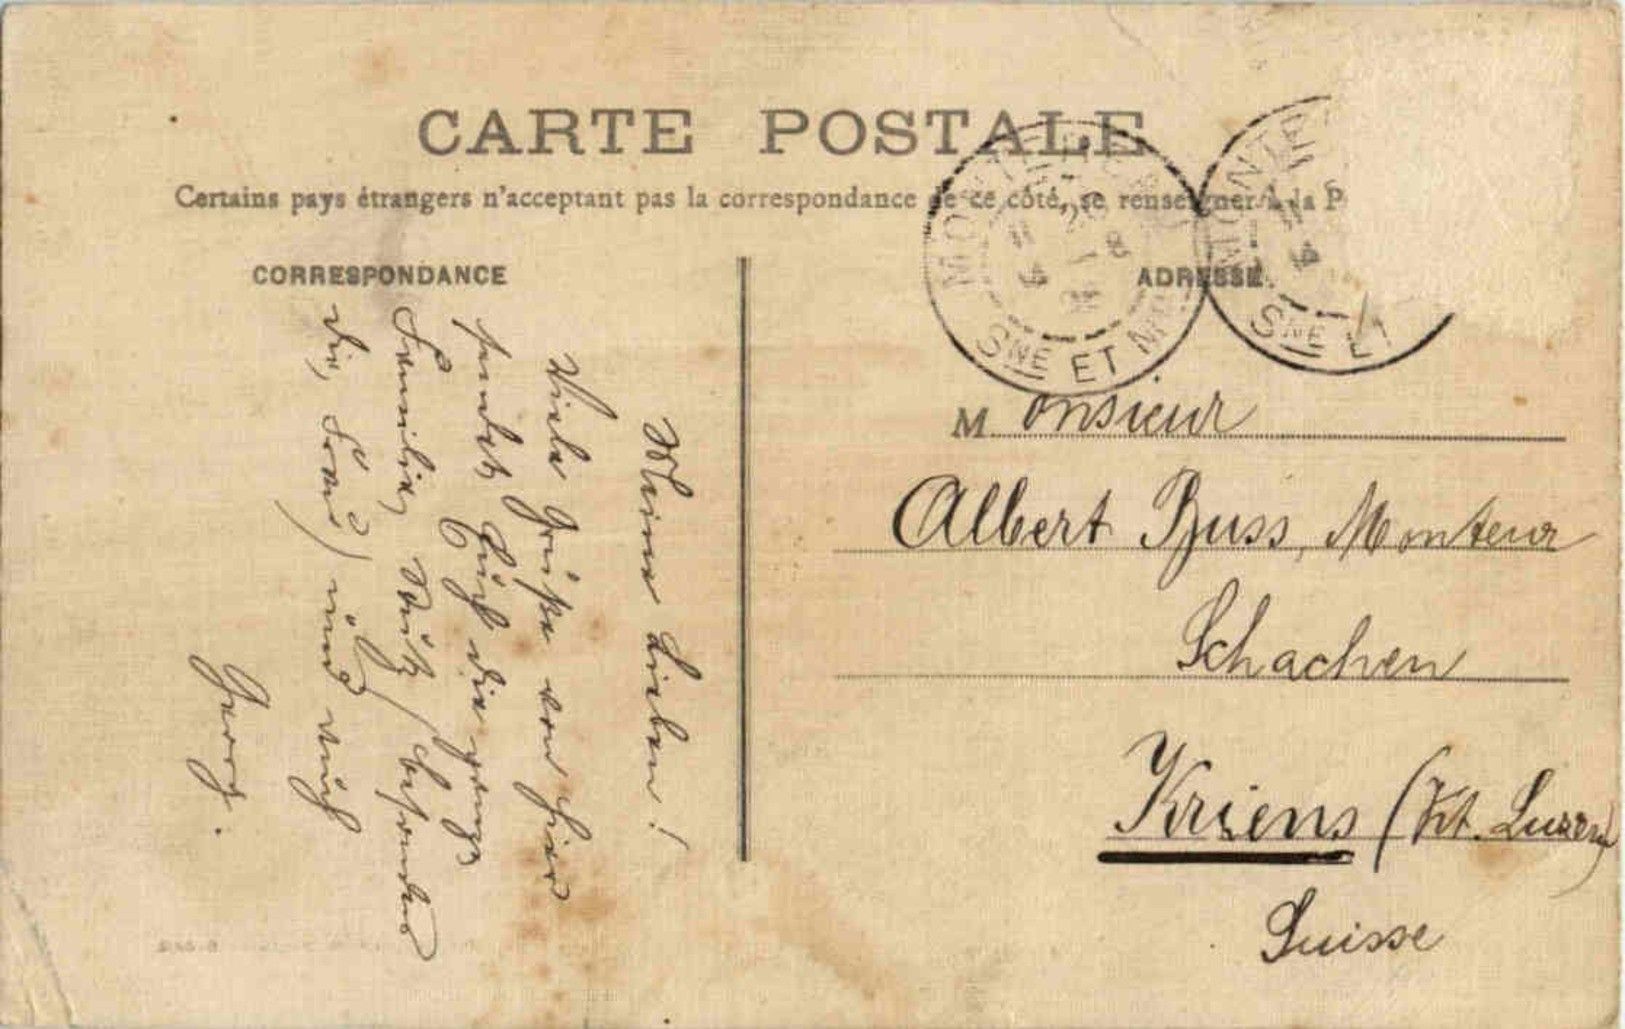 CARTE POSTALE
Certains pays étrangers n'acceptant pas la correspondance de ce côté, se renseigner à la P
CORRESPONDANCE
ADRESSE.
Meine Lieben!
Viele Grüße von hier
sendet Euch die ganze
Familie,
die, Frau) und auch
Georg.
Monsieur
Albert Buss, Monteur
Schachen
Kriens (Kt. Luzern)
Suisse
SNE ET M
SNE ET